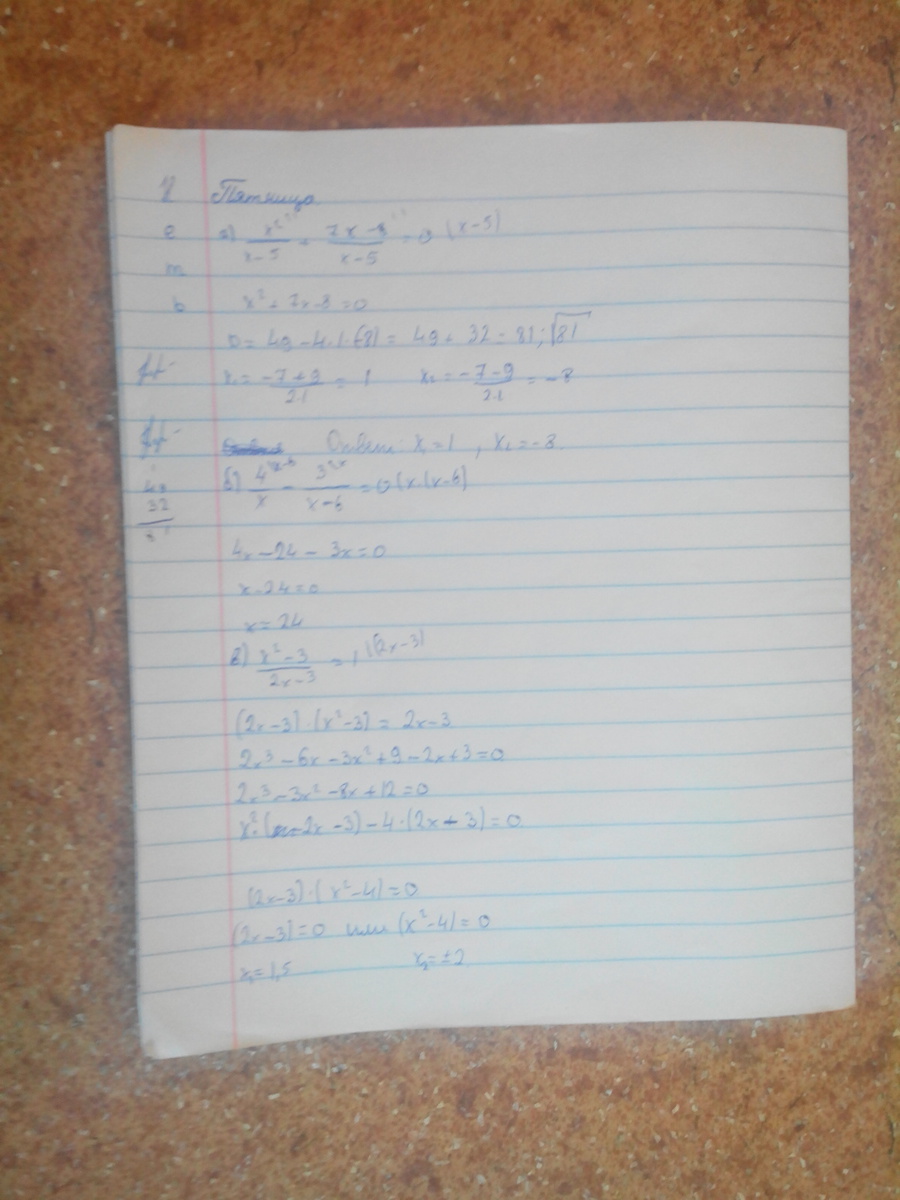 Пятница
а) x²/(x-5) + (7x-8)/(x-5) = 0 |(x-5)
x² + 7x - 8 = 0
D = 49 - 4·1·(-8) = 49 + 32 = 81; √81
x₁ = (-7+9)/(2·1) = 1 x₂ = (-7-9)/(2·1) = -8
Ответ: x₁ = 1, x₂ = -8
б) 4/x - 3/(x-6) = 0 |x·(x-6)
4x - 24 - 3x = 0
x - 24 = 0
x = 24
в) (x²-3)/(2x-3) = 1 |(2x-3)
(2x-3)·(x²-3) = 2x-3
2x³ - 6x - 3x² + 9 - 2x + 3 = 0
2x³ - 3x² - 8x + 12 = 0
x²·(2x - 3) - 4·(2x - 3) = 0
(2x-3)·(x²-4) = 0
(2x-3) = 0 или (x²-4) = 0
x₁ = 1,5 x₂ = ±2